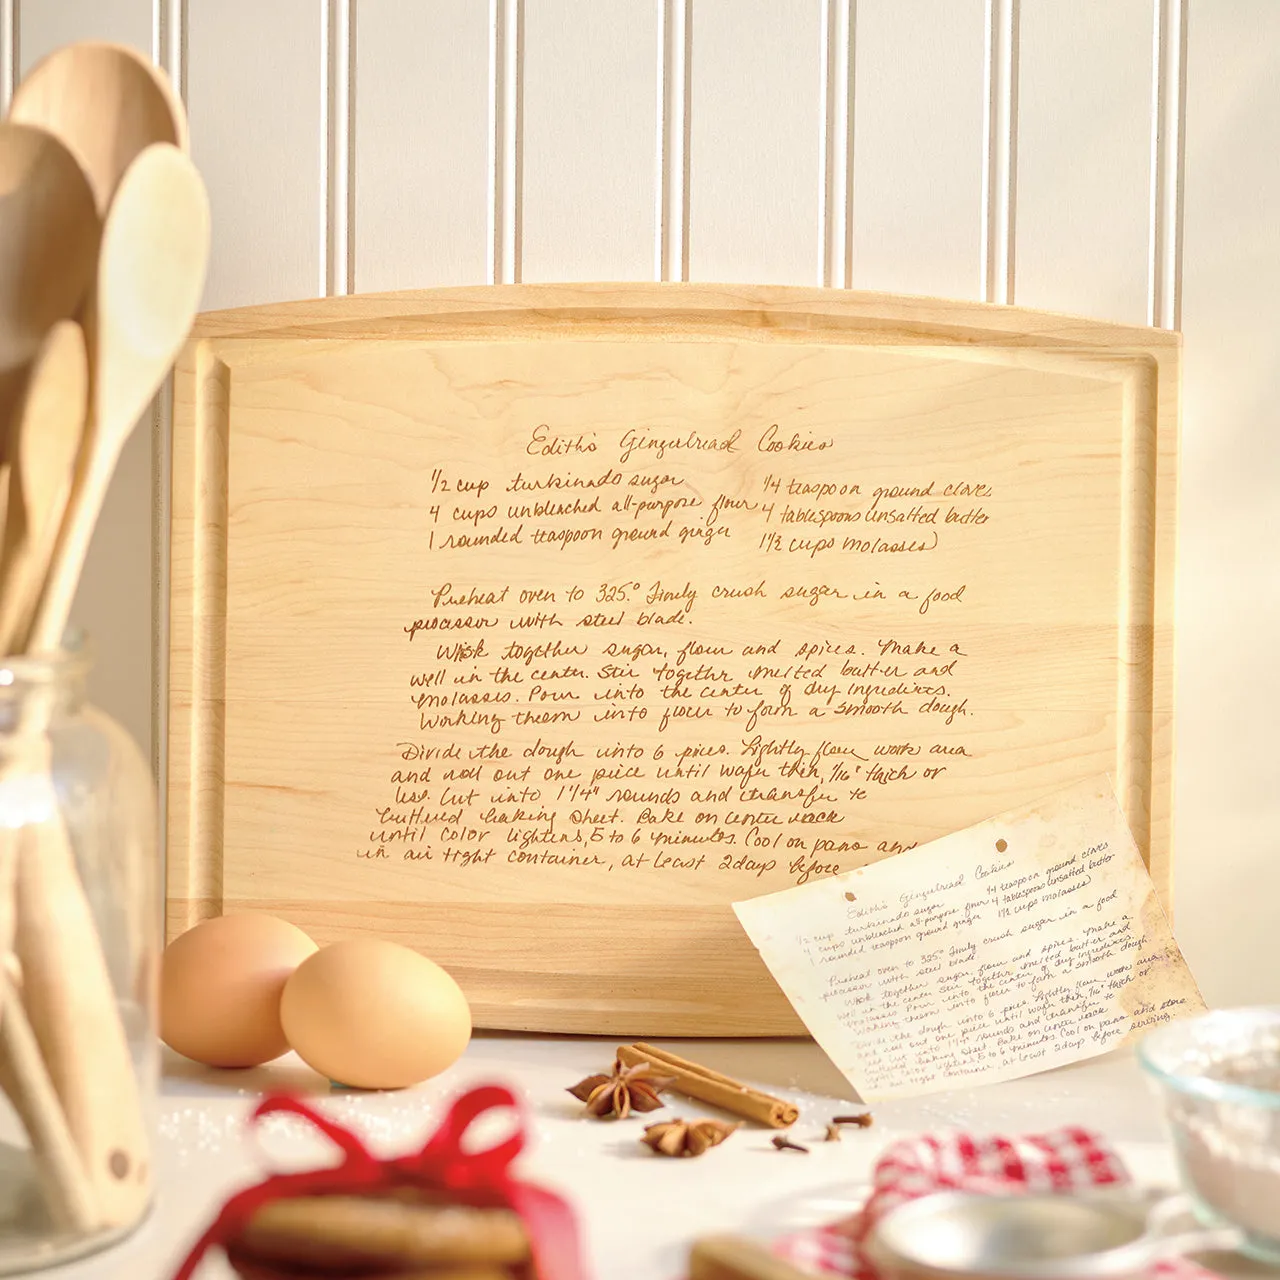 Edith's Gingerbread Cookies
1/2 cup turbinado sugar
4 cups unbleached all-purpose flour
1 rounded teaspoon ground ginger
1/4 teaspoon ground cloves
4 tablespoons unsalted butter
1 1/2 cups molasses)
Preheat oven to 325.° Finely crush sugar in a food
processor with steel blade.
Whisk together sugar, flour and spices. Make a
well in the center. Stir together melted butter and
molasses. Pour into the center of dry ingredients.
Working them into flour to form a smooth dough.
Divide the dough into 6 pieces. Lightly flour work area
and roll out one piece until wafer thin, 1/16" thick or
less. Cut into 1 1/4" rounds and transfer to
buttered baking sheet. Bake on center rack
until color lightens, 5 to 6 minutes. Cool on pans and
in air tight container, at least 2 days before
Edith's Gingerbread Cookies
1/2 cup turbinado sugar
4 cups unbleached all-purpose flour
1 rounded teaspoon ground ginger
1/4 teaspoon ground cloves
4 tablespoons unsalted butter
1 1/2 cups molasses)
Preheat oven to 325.° Finely crush sugar in a food
processor with steel blade.
Whisk together sugar, flour and spices. Make a
well in the center. Stir together melted butter and
molasses. Pour into the center of dry ingredients.
Working them into flour to form a smooth dough.
Divide the dough into 6 pieces. Lightly flour work area
and roll out one piece until wafer thin, 1/16" thick or
less. Cut into 1 1/4" rounds and transfer to
buttered baking sheet. Bake on center rack
until color lightens, 5 to 6 minutes. Cool on pans and store
in air tight container, at least 2 days before serving.